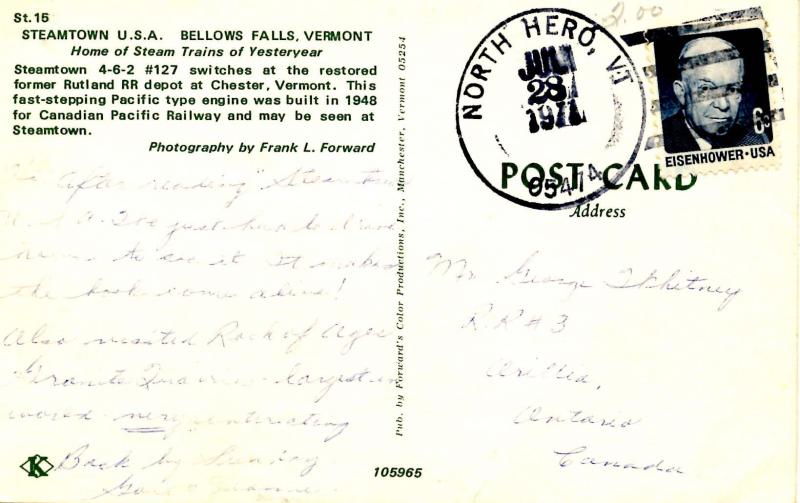 2.00
St. 15
STEAMTOWN U.S.A. BELLOWS FALLS, VERMONT
Home of Steam Trains of Yesteryear
Steamtown 4-6-2 #127 switches at the restored
former Rutland RR depot at Chester, Vermont. This
fast-stepping Pacific type engine was built in 1948
for Canadian Pacific Railway and may be seen at
Steamtown.
Photography by Frank L. Forward
After reading "Steamtown
U.S.A. I've just had to
to see it. It makes
the book come alive!
Also visited Rock of Ages
Granite Quarries - largest in
world - very interesting
Back by Sunday
Pub. by Forward's Color Productions, Inc., Manchester, Vermont 05254
K
105965
NORTH HERO, VT
JUL
28
1971
05474
6c
EISENHOWER·USA
POST CARD
Address
Mr. George Whitney
R.R#3
Orillia,
Ontario
Canada